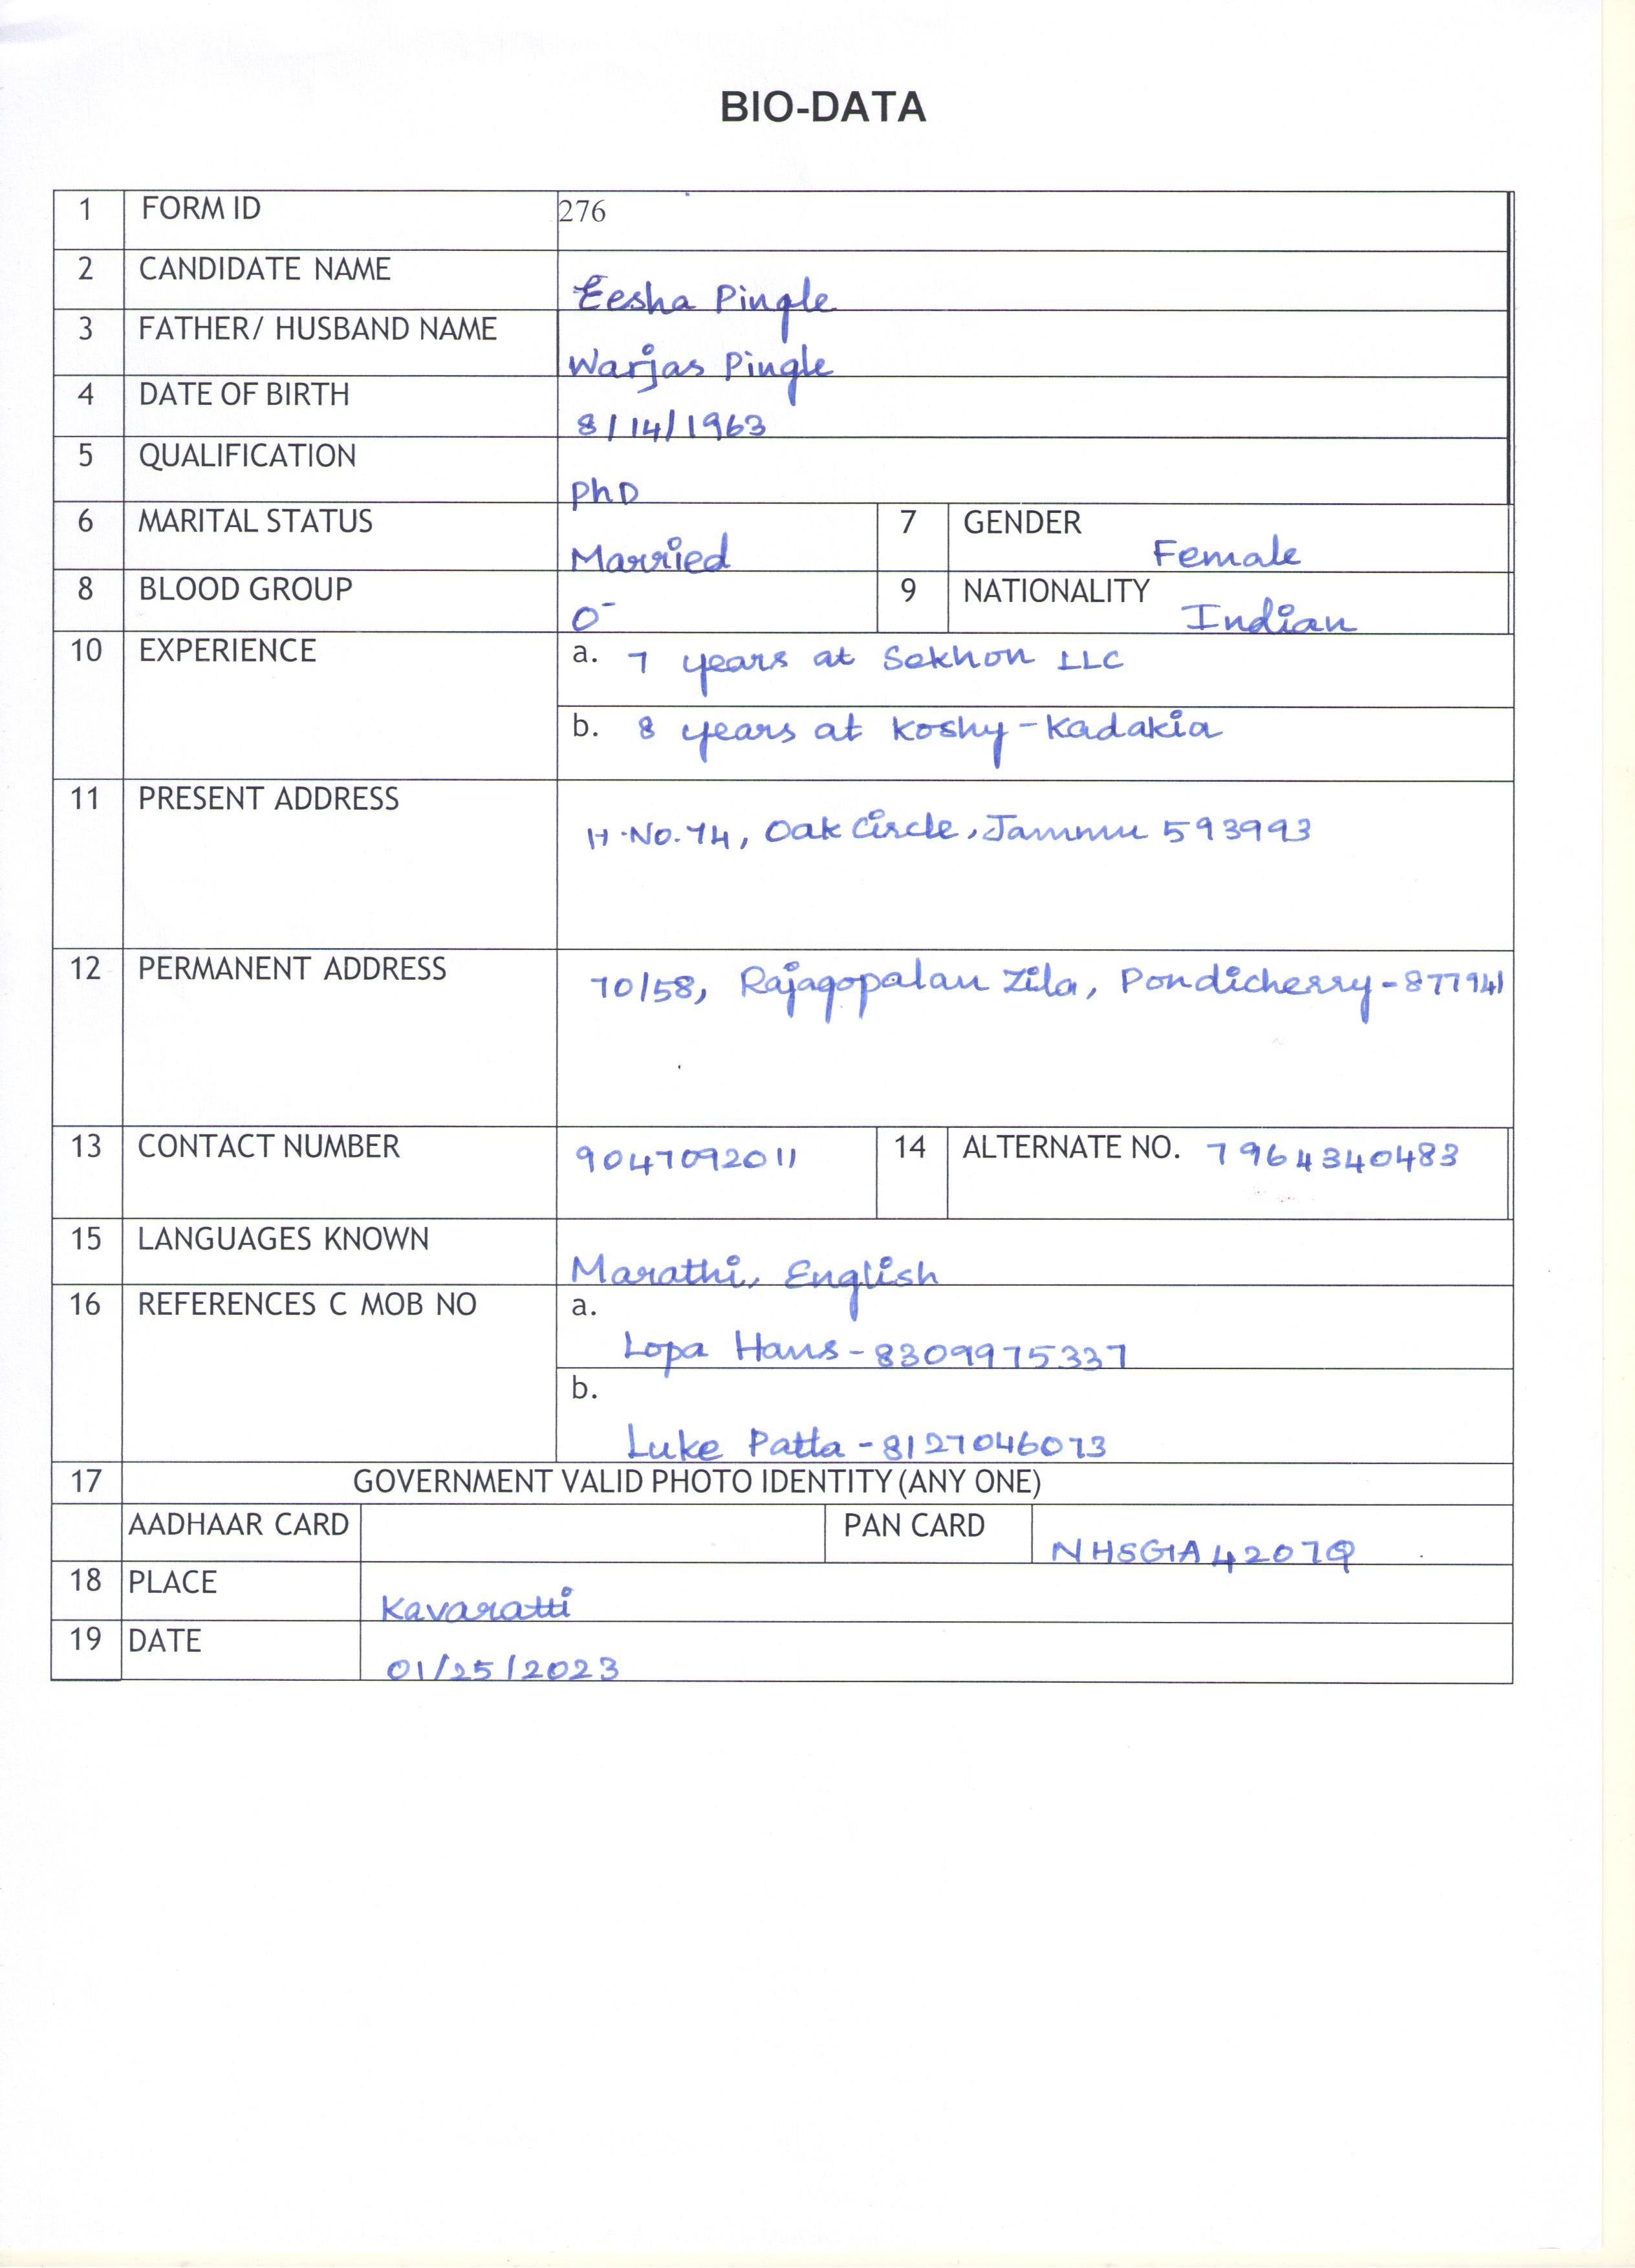 BIO-DATA
1 FORM ID 276
2 CANDIDATE NAME Eesha Pingle
3 FATHER/ HUSBAND NAME Warjas Pingle
4 DATE OF BIRTH 8/14/1963
5 QUALIFICATION PhD
6 MARITAL STATUS Married 7 GENDER Female
8 BLOOD GROUP O- 9 NATIONALITY Indian
10 EXPERIENCE a. 7 years at Sekhon LLC
b. 8 years at Koshy-Kadakia
11 PRESENT ADDRESS H.No.74, Oak Circle, Jammu 593993
12 PERMANENT ADDRESS 70/58, Rajagopalan Zila, Pondicherry-877941
13 CONTACT NUMBER 9047092011 14 ALTERNATE NO. 7964340483
15 LANGUAGES KNOWN Marathi, English
16 REFERENCES C MOB NO a.
Lopa Hans-8309975337
b.
Luke Patta-8127046073
17 GOVERNMENT VALID PHOTO IDENTITY (ANY ONE)
AADHAAR CARD PAN CARD NHSGA4207Q
18 PLACE Kavaratti
19 DATE 01/25/2023